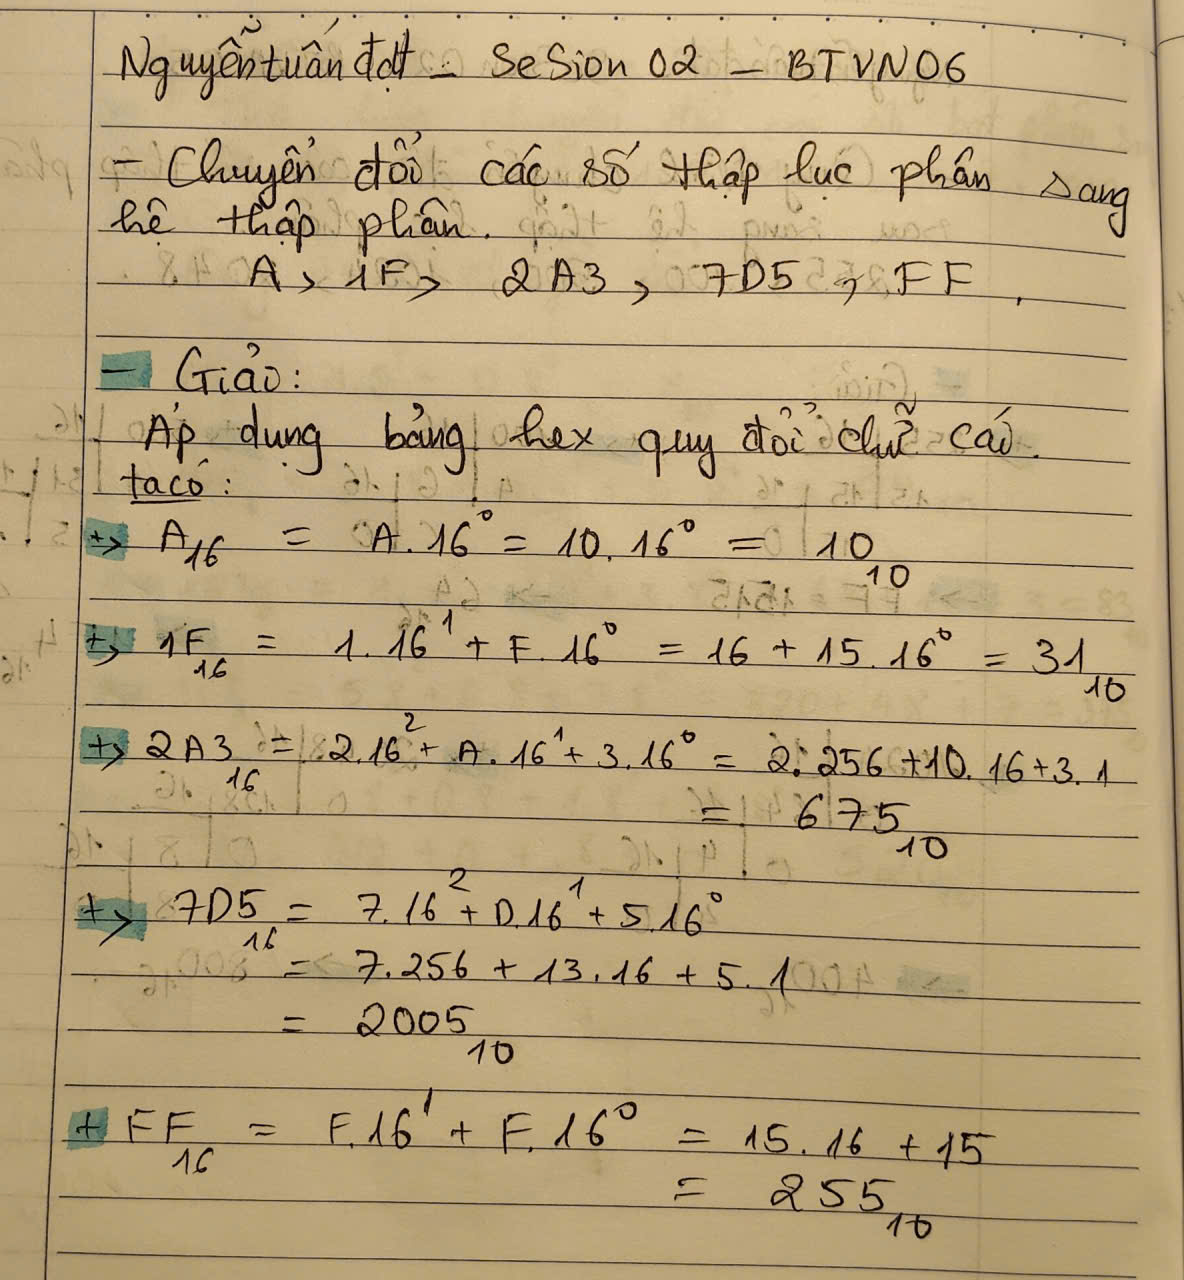 Nguyễn tuấn đạt - SeSion 02 - BTVN06
- Chuyển đổi các số thập lục phân sang
hệ thập phân.
A, 1F, 2A3, 7D5, FF.
- Giải:
Áp dụng bảng hex quy đổi chữ cái.
ta có:
+> A₁₆ = A.16⁰ = 10.16⁰ = 10₁₀
+> 1F₁₆ = 1.16¹ + F.16⁰ = 16 + 15.16⁰ = 31₁₀
+> 2A3₁₆ = 2.16² + A.16¹ + 3.16⁰ = 2.256 + 10.16 + 3.1
= 675₁₀
+> 7D5₁₆ = 7.16² + D.16¹ + 5.16⁰
= 7.256 + 13.16 + 5.1
= 2005₁₀
+ FF₁₆ = F.16¹ + F.16⁰ = 15.16 + 15
= 255₁₀